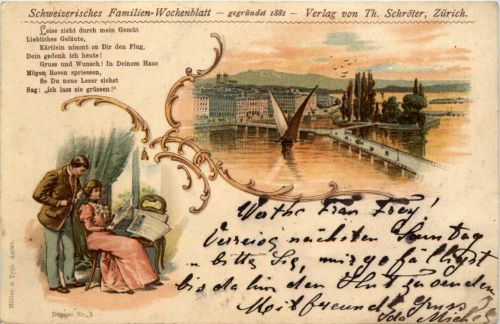 Schweizerisches Familien-Wochenblatt — gegründet 1881 — Verlag von Th. Schröter, Zürich.
Leise zieht durch mein Gemüt
Liebliches Geläute,
Kärtlein nimmt zu Dir den Flug,
Dein gedenk ich heute!
Gruss und Wunsch! In Deinem Haus
Mögen Rosen spriessen,
So Du neue Leser siehst
Sag: „ich lass sie grüssen!"
Werthe Frau Frey!
nächsten Sonntag
bitte Sie, mir gefälligst
bis da hin den Hut zu senden
Mit freundl. Gruss
Ida
Müller & Trüb, Aarau.
Dépose Nr. 3